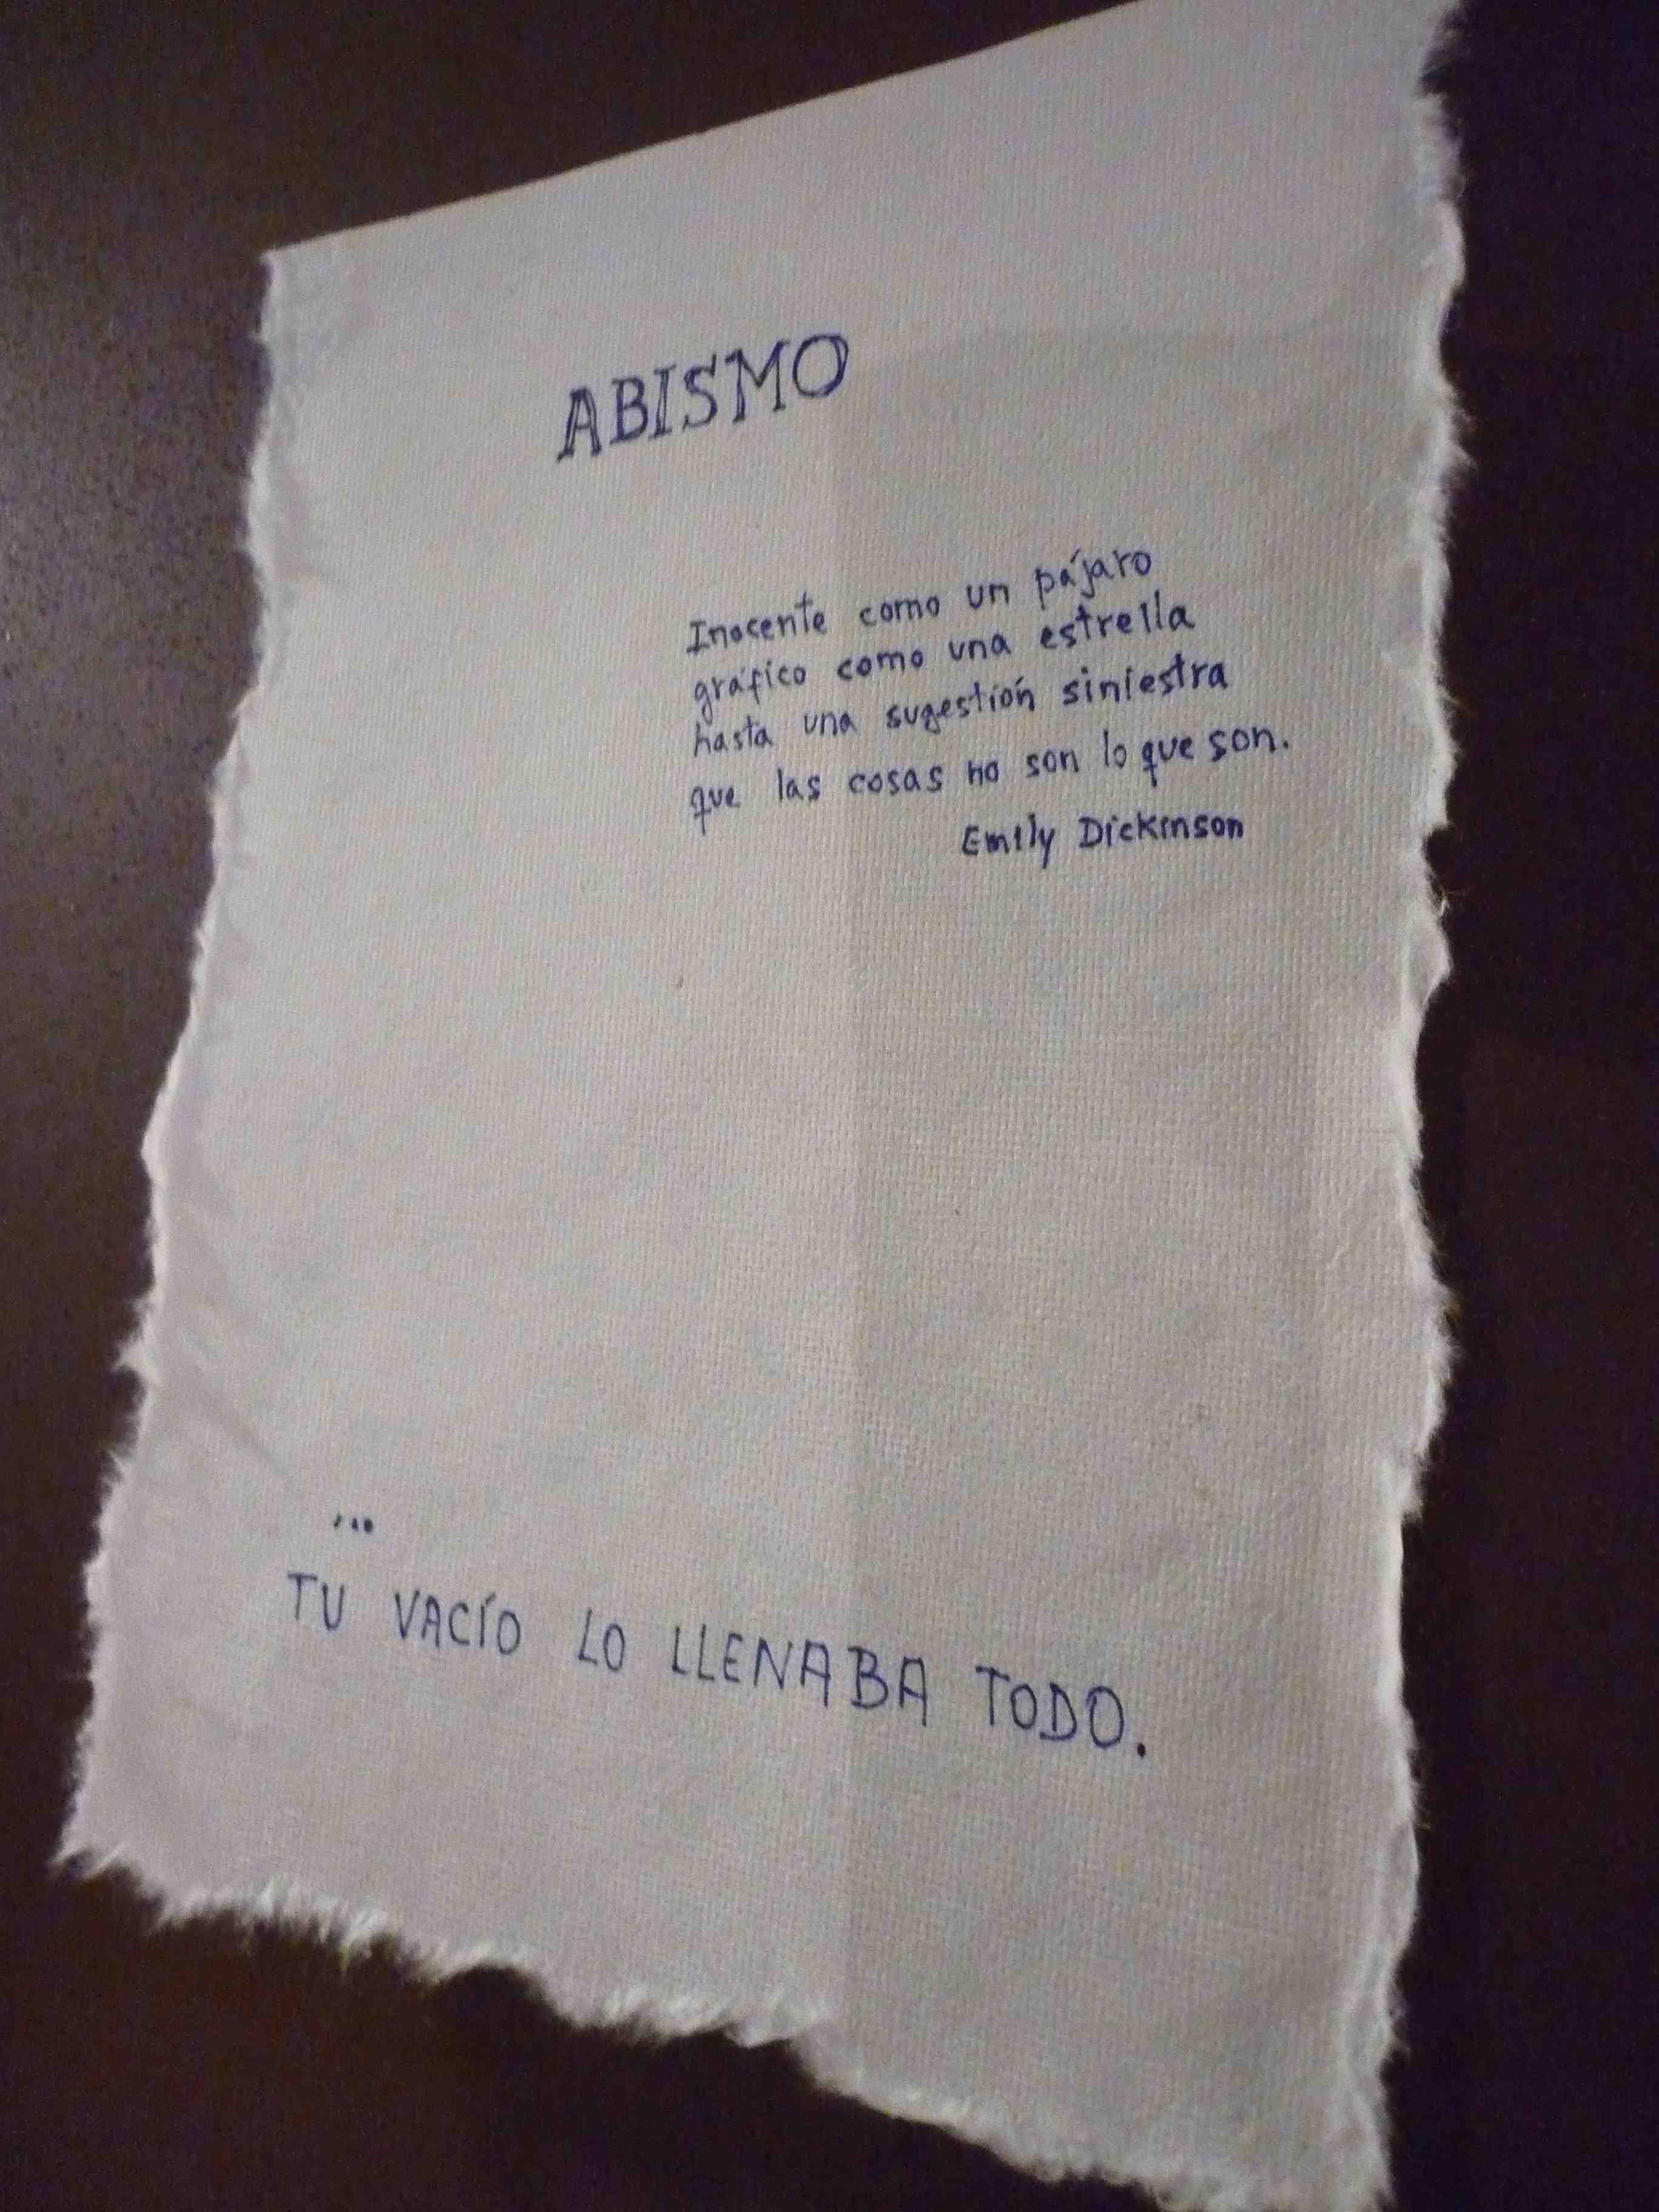 ABISMO
Inocente como un pájaro
gráfico como una estrella
hasta una sugestión siniestra
que las cosas no son lo que son.
Emily Dickinson
...
TU VACÍO LO LLENABA TODO.